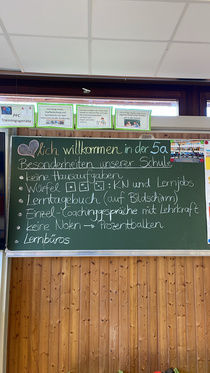 PFC
Trainingsgeräte
♥lich willkommen in der 5a
Besonderheiten unserer Schule
• keine Hausaufgaben
• Würfel ⚀ ⚁ ⚂ : KN und Lernjobs
• Lerntagebuch (auf Bildschirm)
• Einzel-Coachinggespräche mit Lehrkraft
• keine Noten → Prozentbalken
• Lernbüros